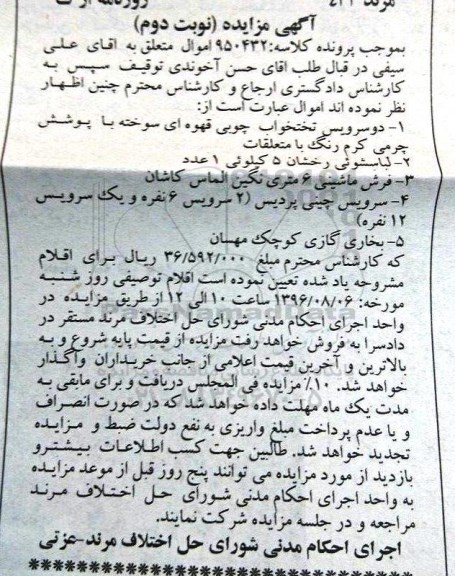 مرند ۲۲۱
آگهی مزایده (نوبت دوم)
بموجب پرونده کلاسه:۹۵۰۴۳۲ اموال متعلق به آقای علی
سیفی در قبال طلب اقای حسن آخوندی توقیف سپس به
کارشناس دادگستری ارجاع و کارشناس محترم چنین اظهار
نظر نموده اند اموال عبارت است از:
۱- دوسرویس تختخواب چوبی قهوه ای سوخته با پوشش
چرمی کرم رنگ با متعلقات
۲- لباسشوئی رخشان ۵ کیلوئی ۱ عدد
۳- فرش ماشینی ۶ متری نگین الماس کاشان
۴- سرویس چینی پردیس (۲ سرویس ۶ نفره و یک سرویس
۱۲ نفره)
۵- بخاری گازی کوچک مهسان
که کارشناس محترم مبلغ ۳۶/۵۹۲/۰۰۰ ریال برای اقلام
مشروحه یاد شده تعیین نموده است اقلام توصیفی روز شنبه
مورخه: ۱۳۹۶/۰۸/۰۶ ساعت ۱۰ الی ۱۲ از طریق مزایده در
واحد اجرای احکام مدنی شورای حل اختلاف مرند مستقر در
دادسرا به فروش خواهد رفت مزایده از قیمت پایه شروع و به
بالاترین و آخرین قیمت اعلامی از جانب خریداران واگذار
خواهد شد. ۱۰٪ مزایده فی المجلس دریافت و برای مابقی به
مدت یک ماه مهلت داده خواهد شد که در صورت انصراف
و یا عدم پرداخت مبلغ واریزی به نفع دولت ضبط و مزایده
تجدید خواهد شد. طالبین جهت کسب اطلاعات بیشترو
بازدید از مورد مزایده می توانند پنج روز قبل از موعد مزایده
به واحد اجرای احکام مدنی شورای حل اختلاف مرند
مراجعه و در جلسه مزایده شرکت نمایند.
اجرای احکام مدنی شورای حل اختلاف مرند-عزتی